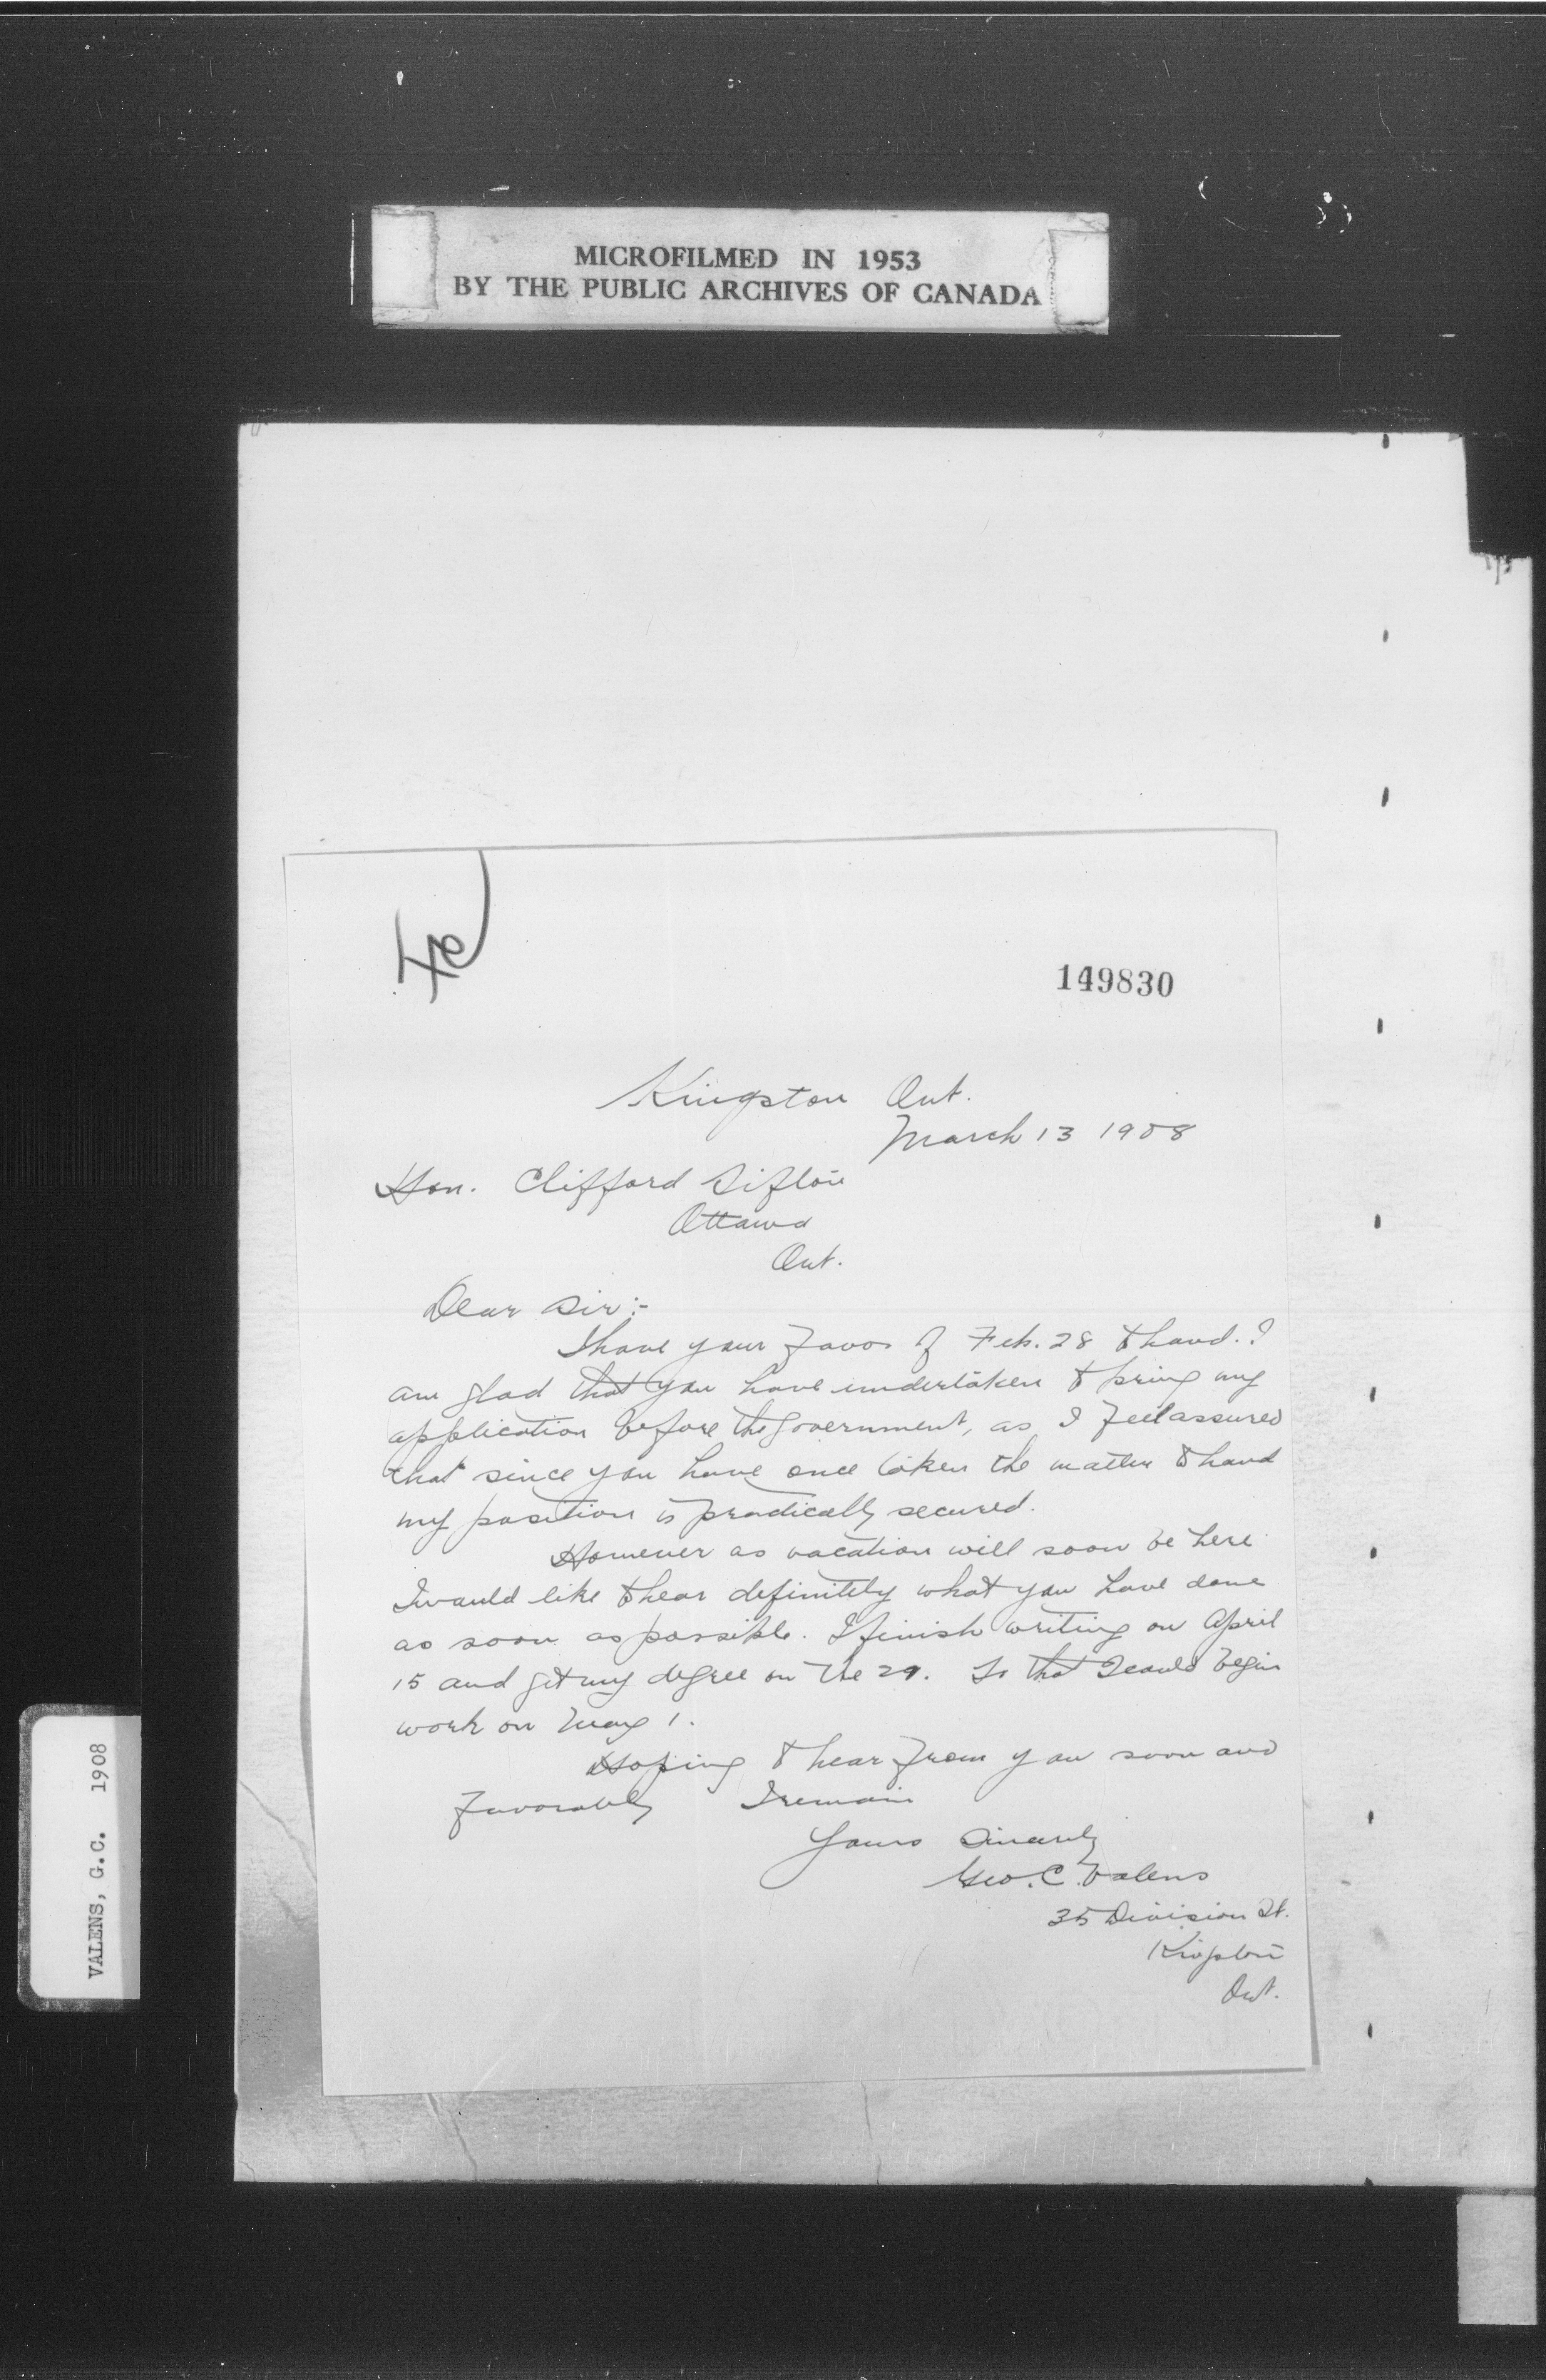 MICROFILMED IN 1953
BY THE PUBLIC ARCHIVES OF CANADA
149830
Kingston Ont.
March 13 1908
Hon. Clifford Sifton
Ottawa
Ont.
Dear Sir:-
I have your favor of Feb. 28 to hand. I
am glad that you have undertaken to bring my
application before the government, as I feel assured
that since you have once taken the matter to hand
my position is practically secured.
However as vacation will soon be here
I would like to hear definitely what you have done
as soon as possible. I finish writing on April
15 and get my degree on the 29. So that I could begin
work on May 1.
Hoping to hear from you soon and
favorably I remain
Yours Sincerely
Geo. C. Valens
35 Division St.
Kingston
Ont.
VALENS, G.C. 1908